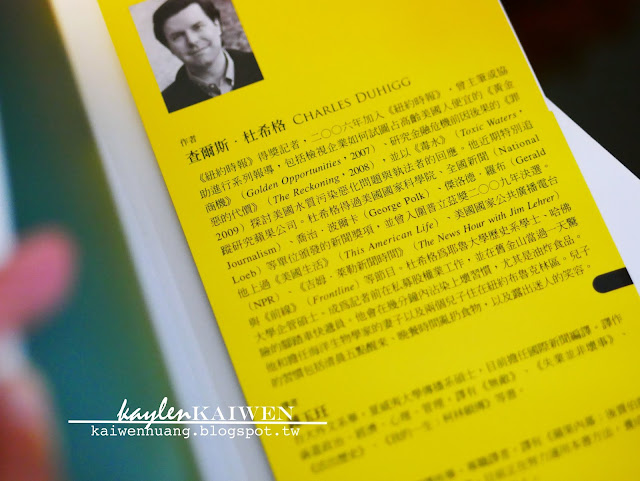 作者
查爾斯‧杜希格 CHARLES DUHIGG
《紐約時報》得獎記者，二〇〇六年加入《紐約時報》，曾主筆或協
助進行系列報導，包括檢視企業如何試圖占高齡美國人便宜的《黃金
商機》（Golden Opportunities, 2007）、研究金融危機前因後果的《罪
惡的代價》（The Reckoning, 2008），並以《毒水》（Toxic Waters,
2009）探討美國水質污染惡化問題與執法者的回應。他近期特別追
蹤研究蘋果公司。杜希格得過美國國家科學院、全國新聞（National
Journalism）、喬治‧波爾卡（George Polk）、傑洛德‧羅布（Gerald
Loeb）等單位頒發的新聞獎項，並曾入圍普立茲獎二〇〇九年決選。
他上過《美國生活》（This American Life）、美國國家公共廣播電台
（NPR）、《吉姆‧萊勒新聞時間》（The News Hour with Jim Lehrer）
與《前線》（Frontline）等節目。杜希格為耶魯大學歷史系學士、哈佛
大學企管碩士，成為記者前在私募股權業工作，並在舊金山當過一天驚
險的腳踏車快遞員。他會在幾分鐘內沾染上壞習慣，尤其是油炸食品。
他和擔任海洋生物學家的妻子以及兩個兒子住在紐約布魯克林區。兒子
的習慣包括清晨五點醒來、晚餐時間亂扔食物，以及露出迷人的笑容。
kaylenKAIWEN
kaiwenhuang.blogspot.tw